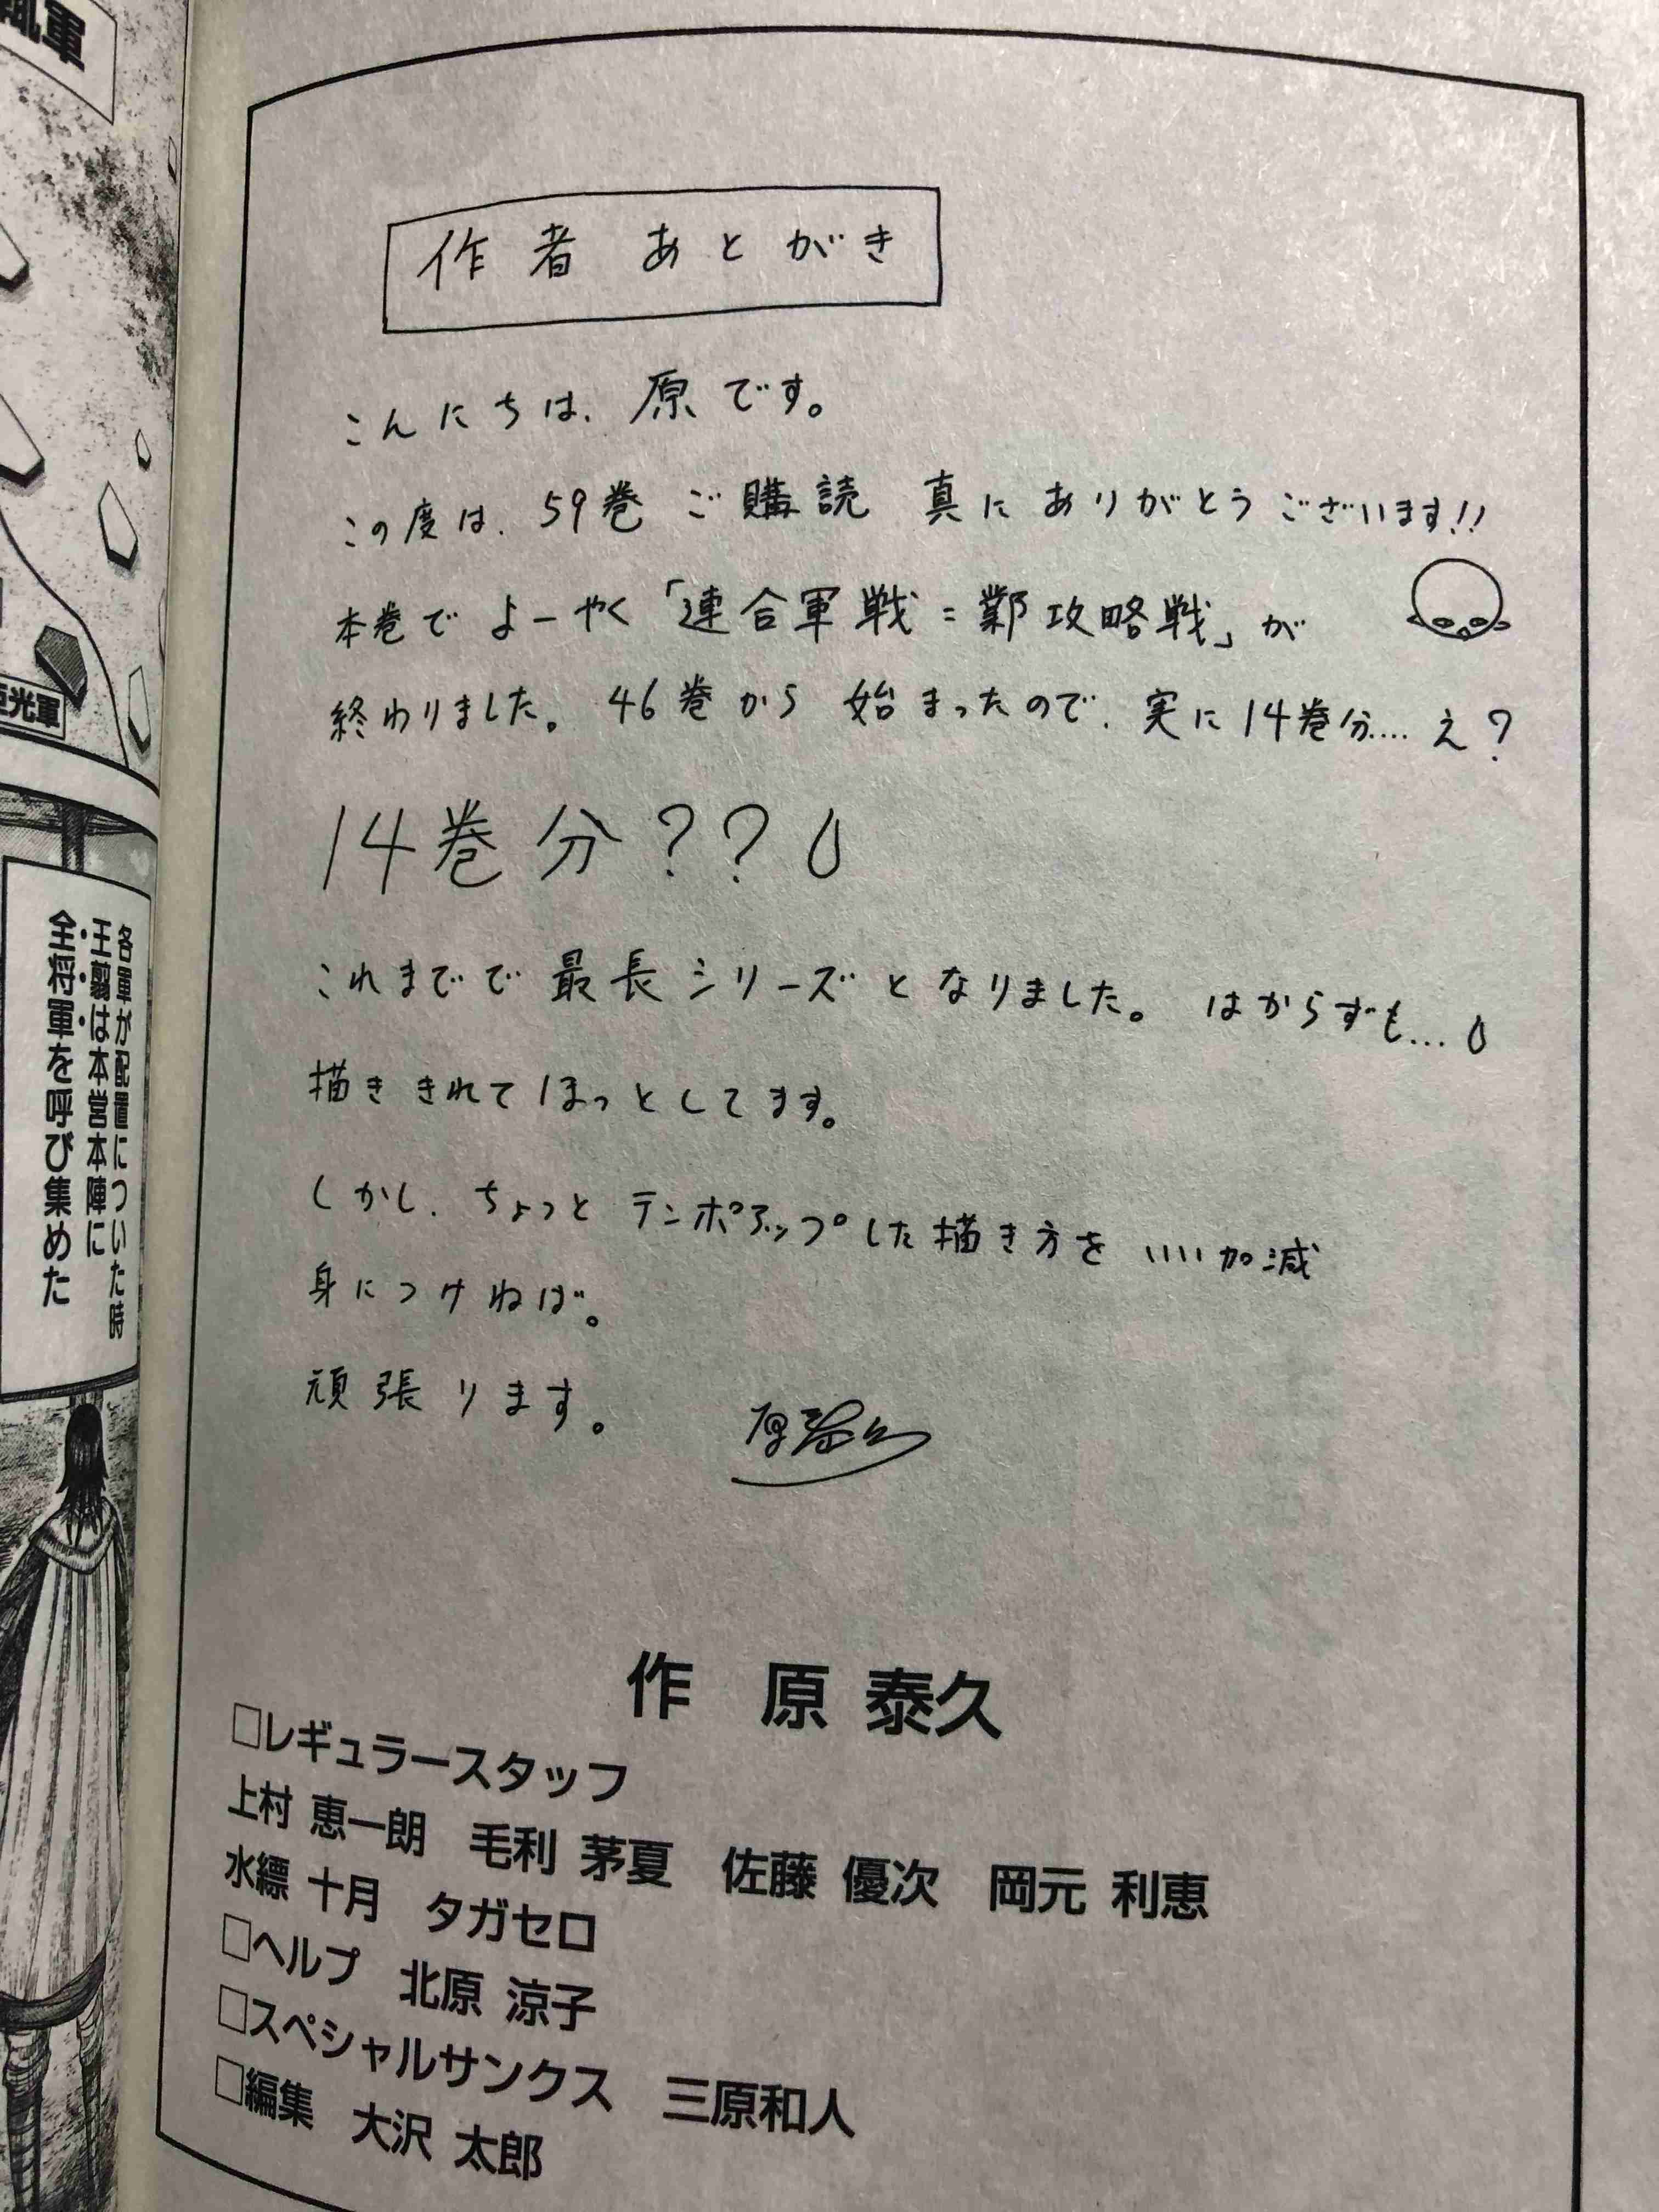 作者 あとがき
こんにちは、原です。
この度は、59巻 ご購読 真に ありがとう ございます!!
本巻で よーやく「連合軍戦=鄴攻略戦」が
終わりました。 46巻から 始まったので、実に14巻分.... え?
14巻分??
これまでで 最長シリーズとなりました。 はからずも...
描ききれてほっとしてます。
しかし、ちょっと テンポアップした描き方を いい加減
身につけねば。
頑張ります。
原泰久
作 原 泰久
□レギュラースタッフ
上村 恵一朗 毛利 茅夏 佐藤 優次 岡元 利恵
水縹 十月 タガセロ
□ヘルプ 北原 涼子
□スペシャルサンクス 三原和人
□編集 大沢 太郎
各軍が配置についた時
王翦は本営本陣に
全将軍を呼び集めた
光軍
軍